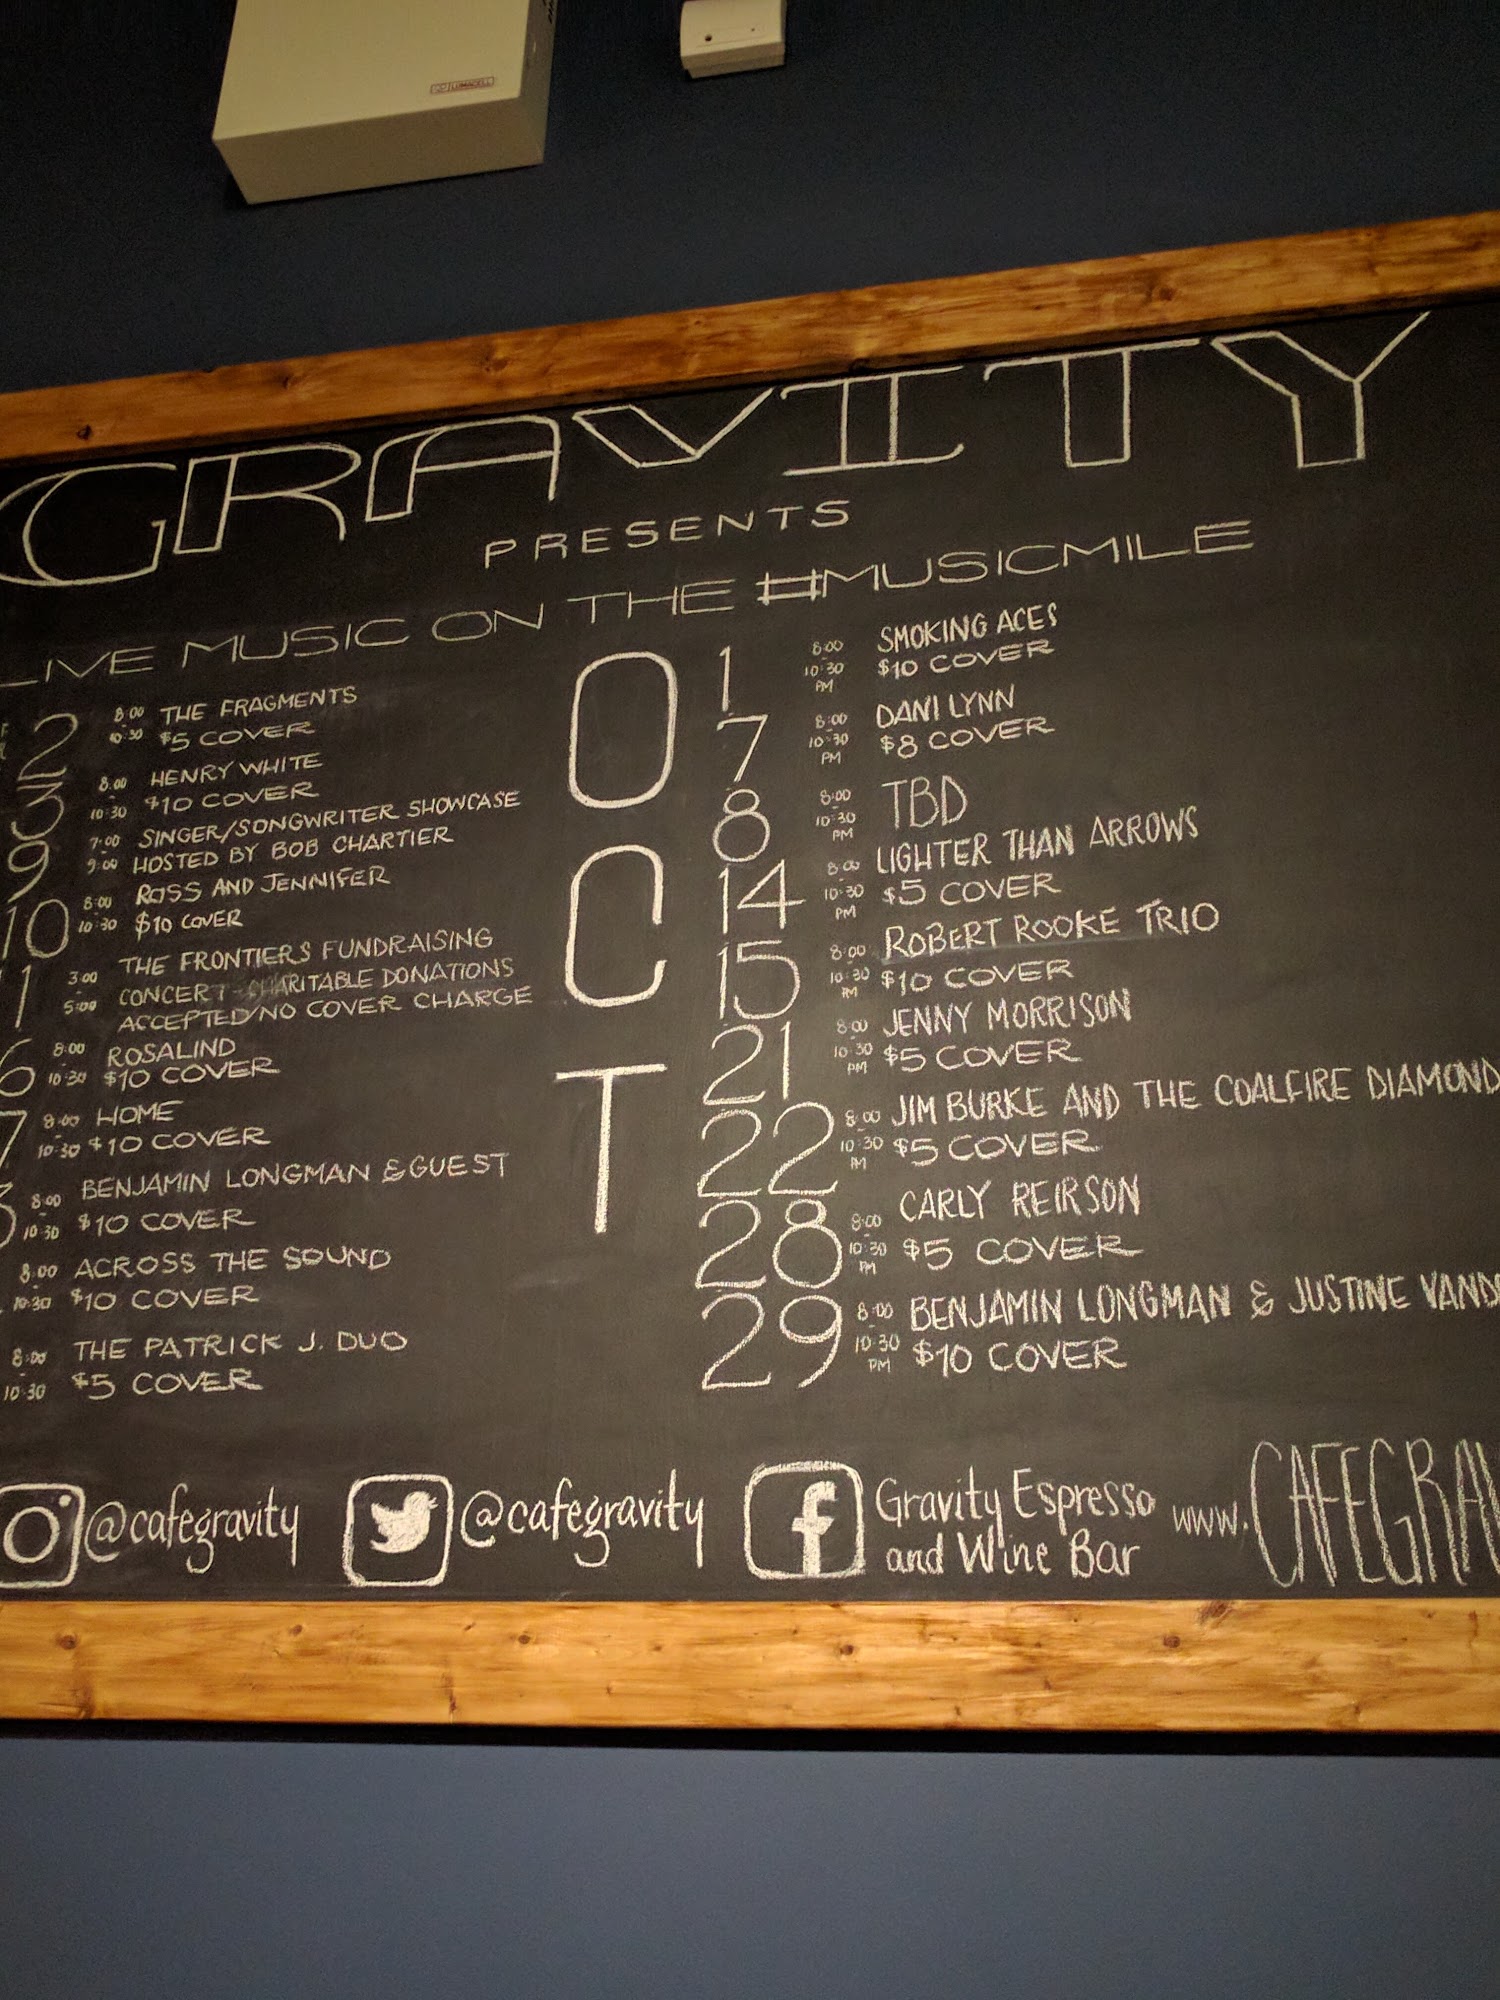 LUMACELL
GRAVITY
PRESENTS
LIVE MUSIC ON THE #MUSICMILE
2 8:00 - 10:30 THE FRAGMENTS
$5 COVER
3 8:00 - 10:30 HENRY WHITE
$10 COVER
9 7:00 - 9:00 SINGER/SONGWRITER SHOWCASE
HOSTED BY BOB CHARTIER
10 8:00 - 10:30 ROSS AND JENNIFER
$10 COVER
11 3:00 - 5:00 THE FRONTIERS FUNDRAISING
CONCERT - CHARITABLE DONATIONS
ACCEPTED/NO COVER CHARGE
8:00 - 10:30 ROSALIND
$10 COVER
8:00 - 10:30 HOME
$10 COVER
8:00 - 10:30 BENJAMIN LONGMAN & GUEST
$10 COVER
8:00 - 10:30 ACROSS THE SOUND
$10 COVER
8:00 - 10:30 THE PATRICK J. DUO
$5 COVER
OCT
1 8:00 - 10:30 PM SMOKING ACES
$10 COVER
7 8:00 - 10:30 PM DANI LYNN
$8 COVER
8 8:00 - 10:30 PM TBD
14 8:00 - 10:30 PM LIGHTER THAN ARROWS
$5 COVER
15 8:00 - 10:30 PM ROBERT ROOKE TRIO
$10 COVER
21 8:00 - 10:30 PM JENNY MORRISON
$5 COVER
22 8:00 - 10:30 PM JIM BURKE AND THE COALFIRE DIAMOND
$5 COVER
28 8:00 - 10:30 PM CARLY REIRSON
$5 COVER
29 8:00 - 10:30 PM BENJAMIN LONGMAN & JUSTINE VAND
$10 COVER
@cafegravity
@cafegravity
Gravity Espresso
and Wine Bar
www.CAFEGRAV